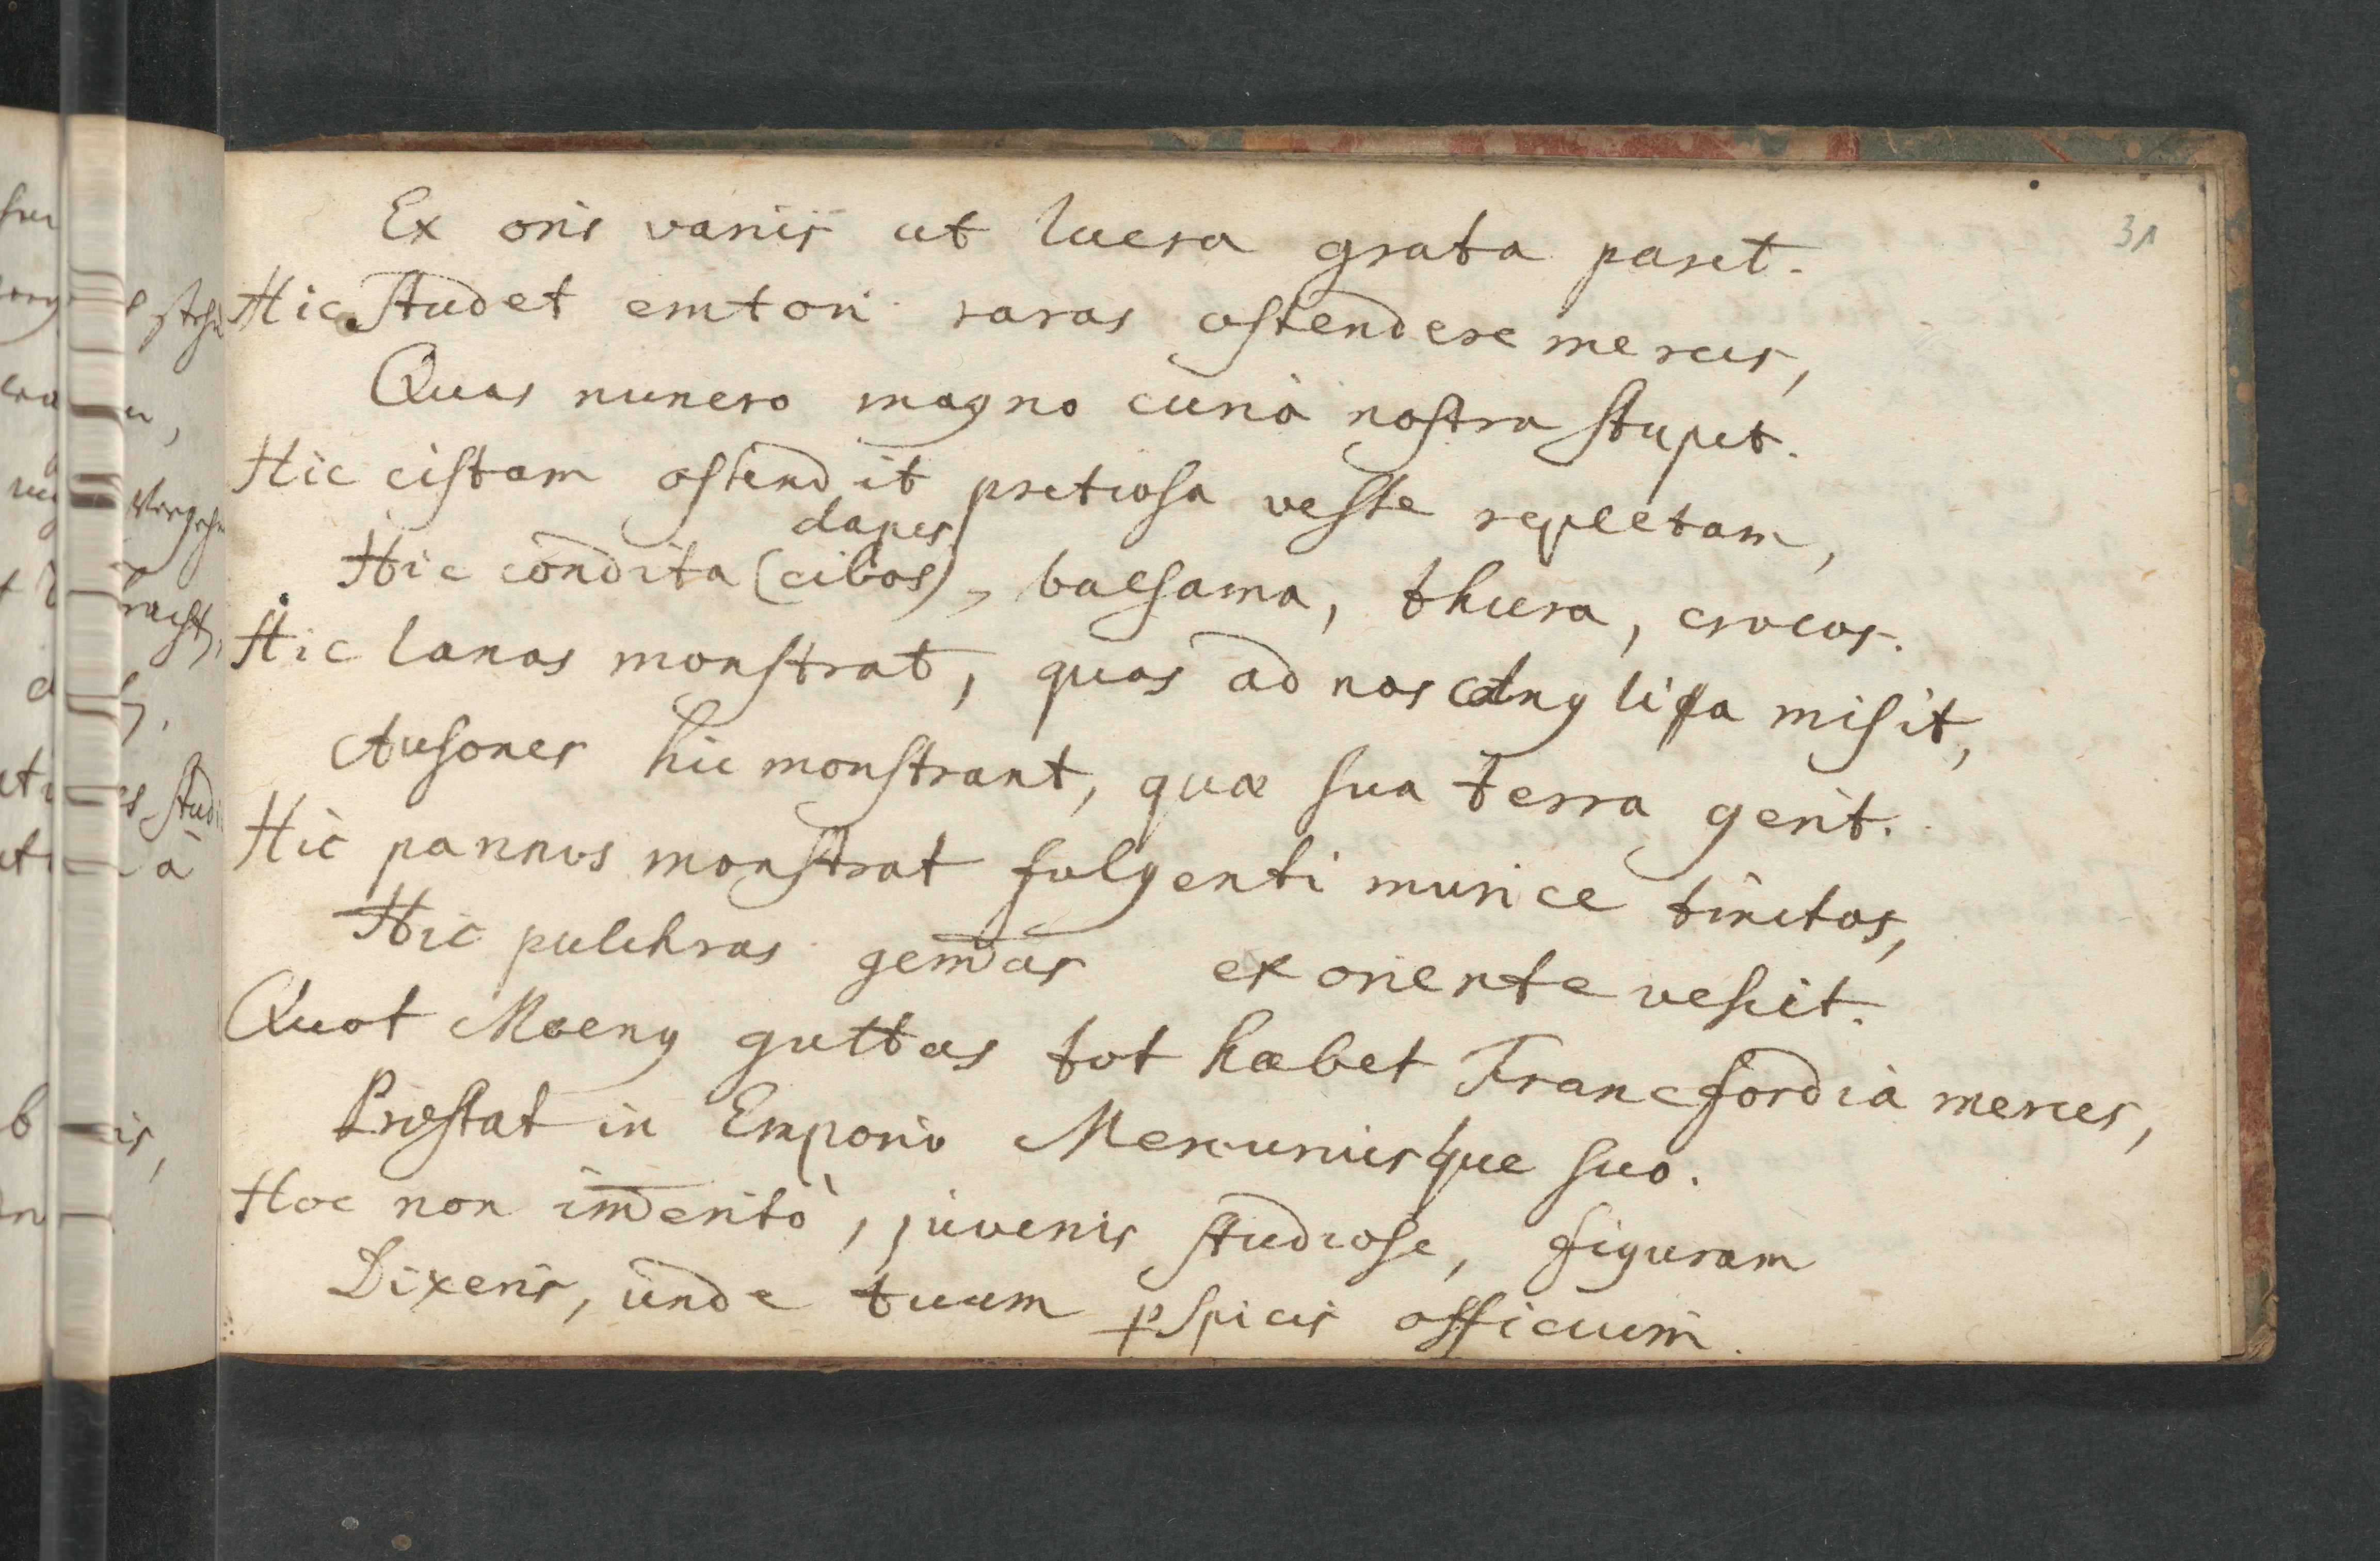 31
Ex oris variis ut lucra grata paret.
Hic studet emtori raras ostendere merces,
Quas numero magno curia nostra stupet.
Hic cistam ostendit pretiosa veste repletam,
dapes
Hic condita (cibos), balsama, thura, crocos.
Hic lanas monstrat, quas ad nos Anglica misit,
Ausones hic monstrant, quæ sua terra gerit.
Hic pannos monstrat fulgenti murice tinctos,
Hic pulchras gem̄as ex oriente vehit.
Quot Moeny guttas tot habet Francfordia merces,
Præstat in Emporio Mercuriusque suo.
Hoc non im̄eritò, juvenis studiose, figuram
Dixeris, unde tuum ꝑspicis officium.